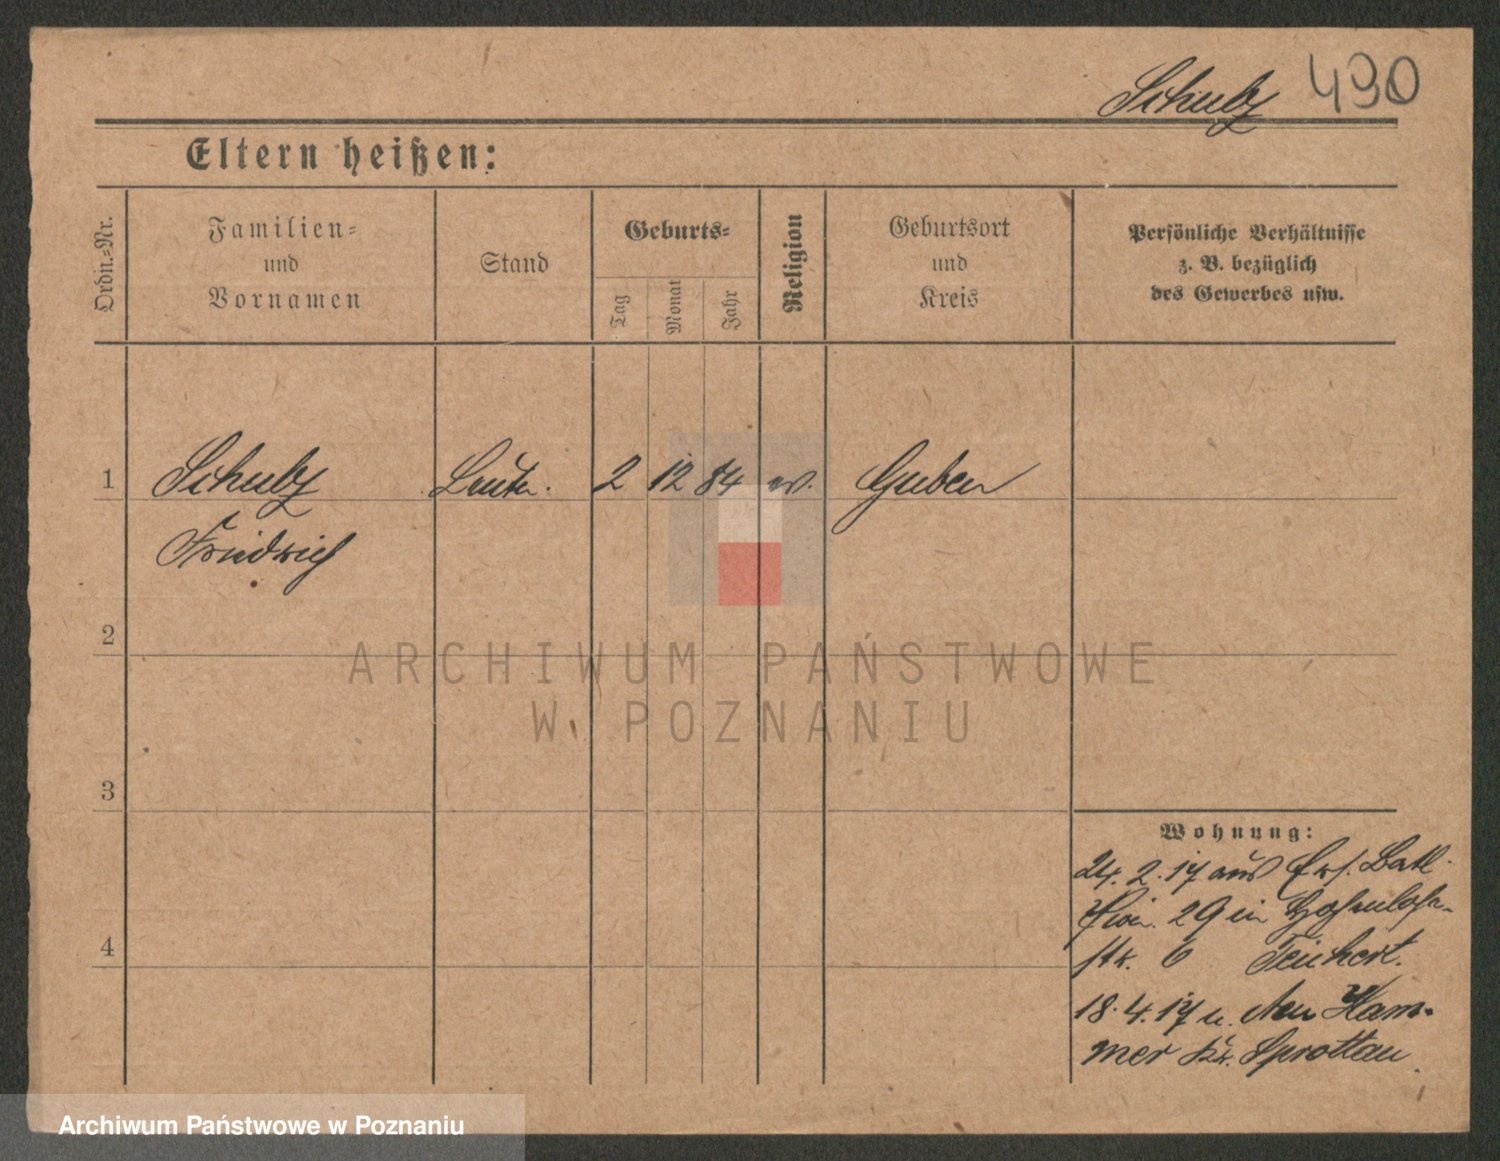 Schulz 490
Eltern heißen:
Ordn.-Nr.
Familien-
und
Vornamen
Stand
Geburts-
Tag
Monat
Jahr
Religion
Geburtsort
und
Kreis
Persönliche Verhältnisse
z. B. bezüglich
des Gewerbes usw.
1 Schulz Leutn. 2 12 84 ev. Guben
Friedrich
2
3
4
Wohnung:
24. 2. 17 aus Ers. Batl.
29 in Hohenlohe-
str. 6 Teichert.
18. 4. 17 n. Neu Ham-
mer Kr. Sprottau
ARCHIWUM PAŃSTWOWE
W POZNANIU
Archiwum Państwowe w Poznaniu